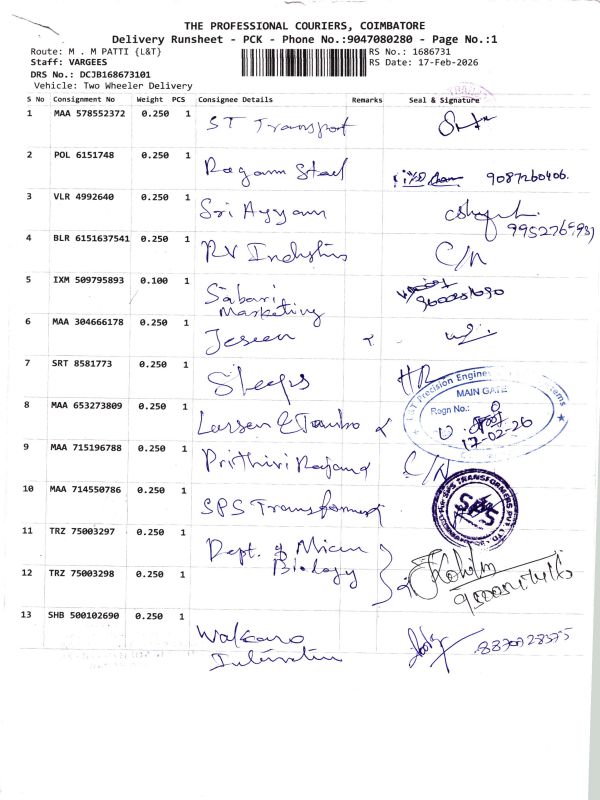 THE PROFESSIONAL COURIERS, COIMBATORE
Delivery Runsheet - PCK - Phone No.:9047080280 - Page No.:1
Route: M . M PATTI {L&T} RS No.: 1686731
Staff: VARGEES RS Date: 17-Feb-2026
DRS No.: DCJB168673101
Vehicle: Two Wheeler Delivery
S No Consignment No Weight PCS Consignee Details Remarks Seal & Signature
1 MAA 578552372 0.250 1 ST Transport
2 POL 6151748 0.250 1 Ragam Steel 9087260406.
3 VLR 4992640 0.250 1 Sri Ayyam
4 BLR 6151637541 0.250 1 RV Industries C/N
5 IXM 509795893 0.100 1 Sabari
Marketing
6 MAA 304666178 0.250 1 Jeseen
7 SRT 8581773 0.250 1 Sleeps HR
Precision Engine
MAIN GATE
Regn No.:
17-02-26
8 MAA 653273809 0.250 1 Larsen & Toubro
9 MAA 715196788 0.250 1 Prithivi Rajand C/N
10 MAA 714550786 0.250 1 SPS Transformers
SPS TRANSFORMERS PVT LTD
SPS
11 TRZ 75003297 0.250 1 Dept. of Micro
Biology
12 TRZ 75003298 0.250 1
13 SHB 500102690 0.250 1 Walkaro